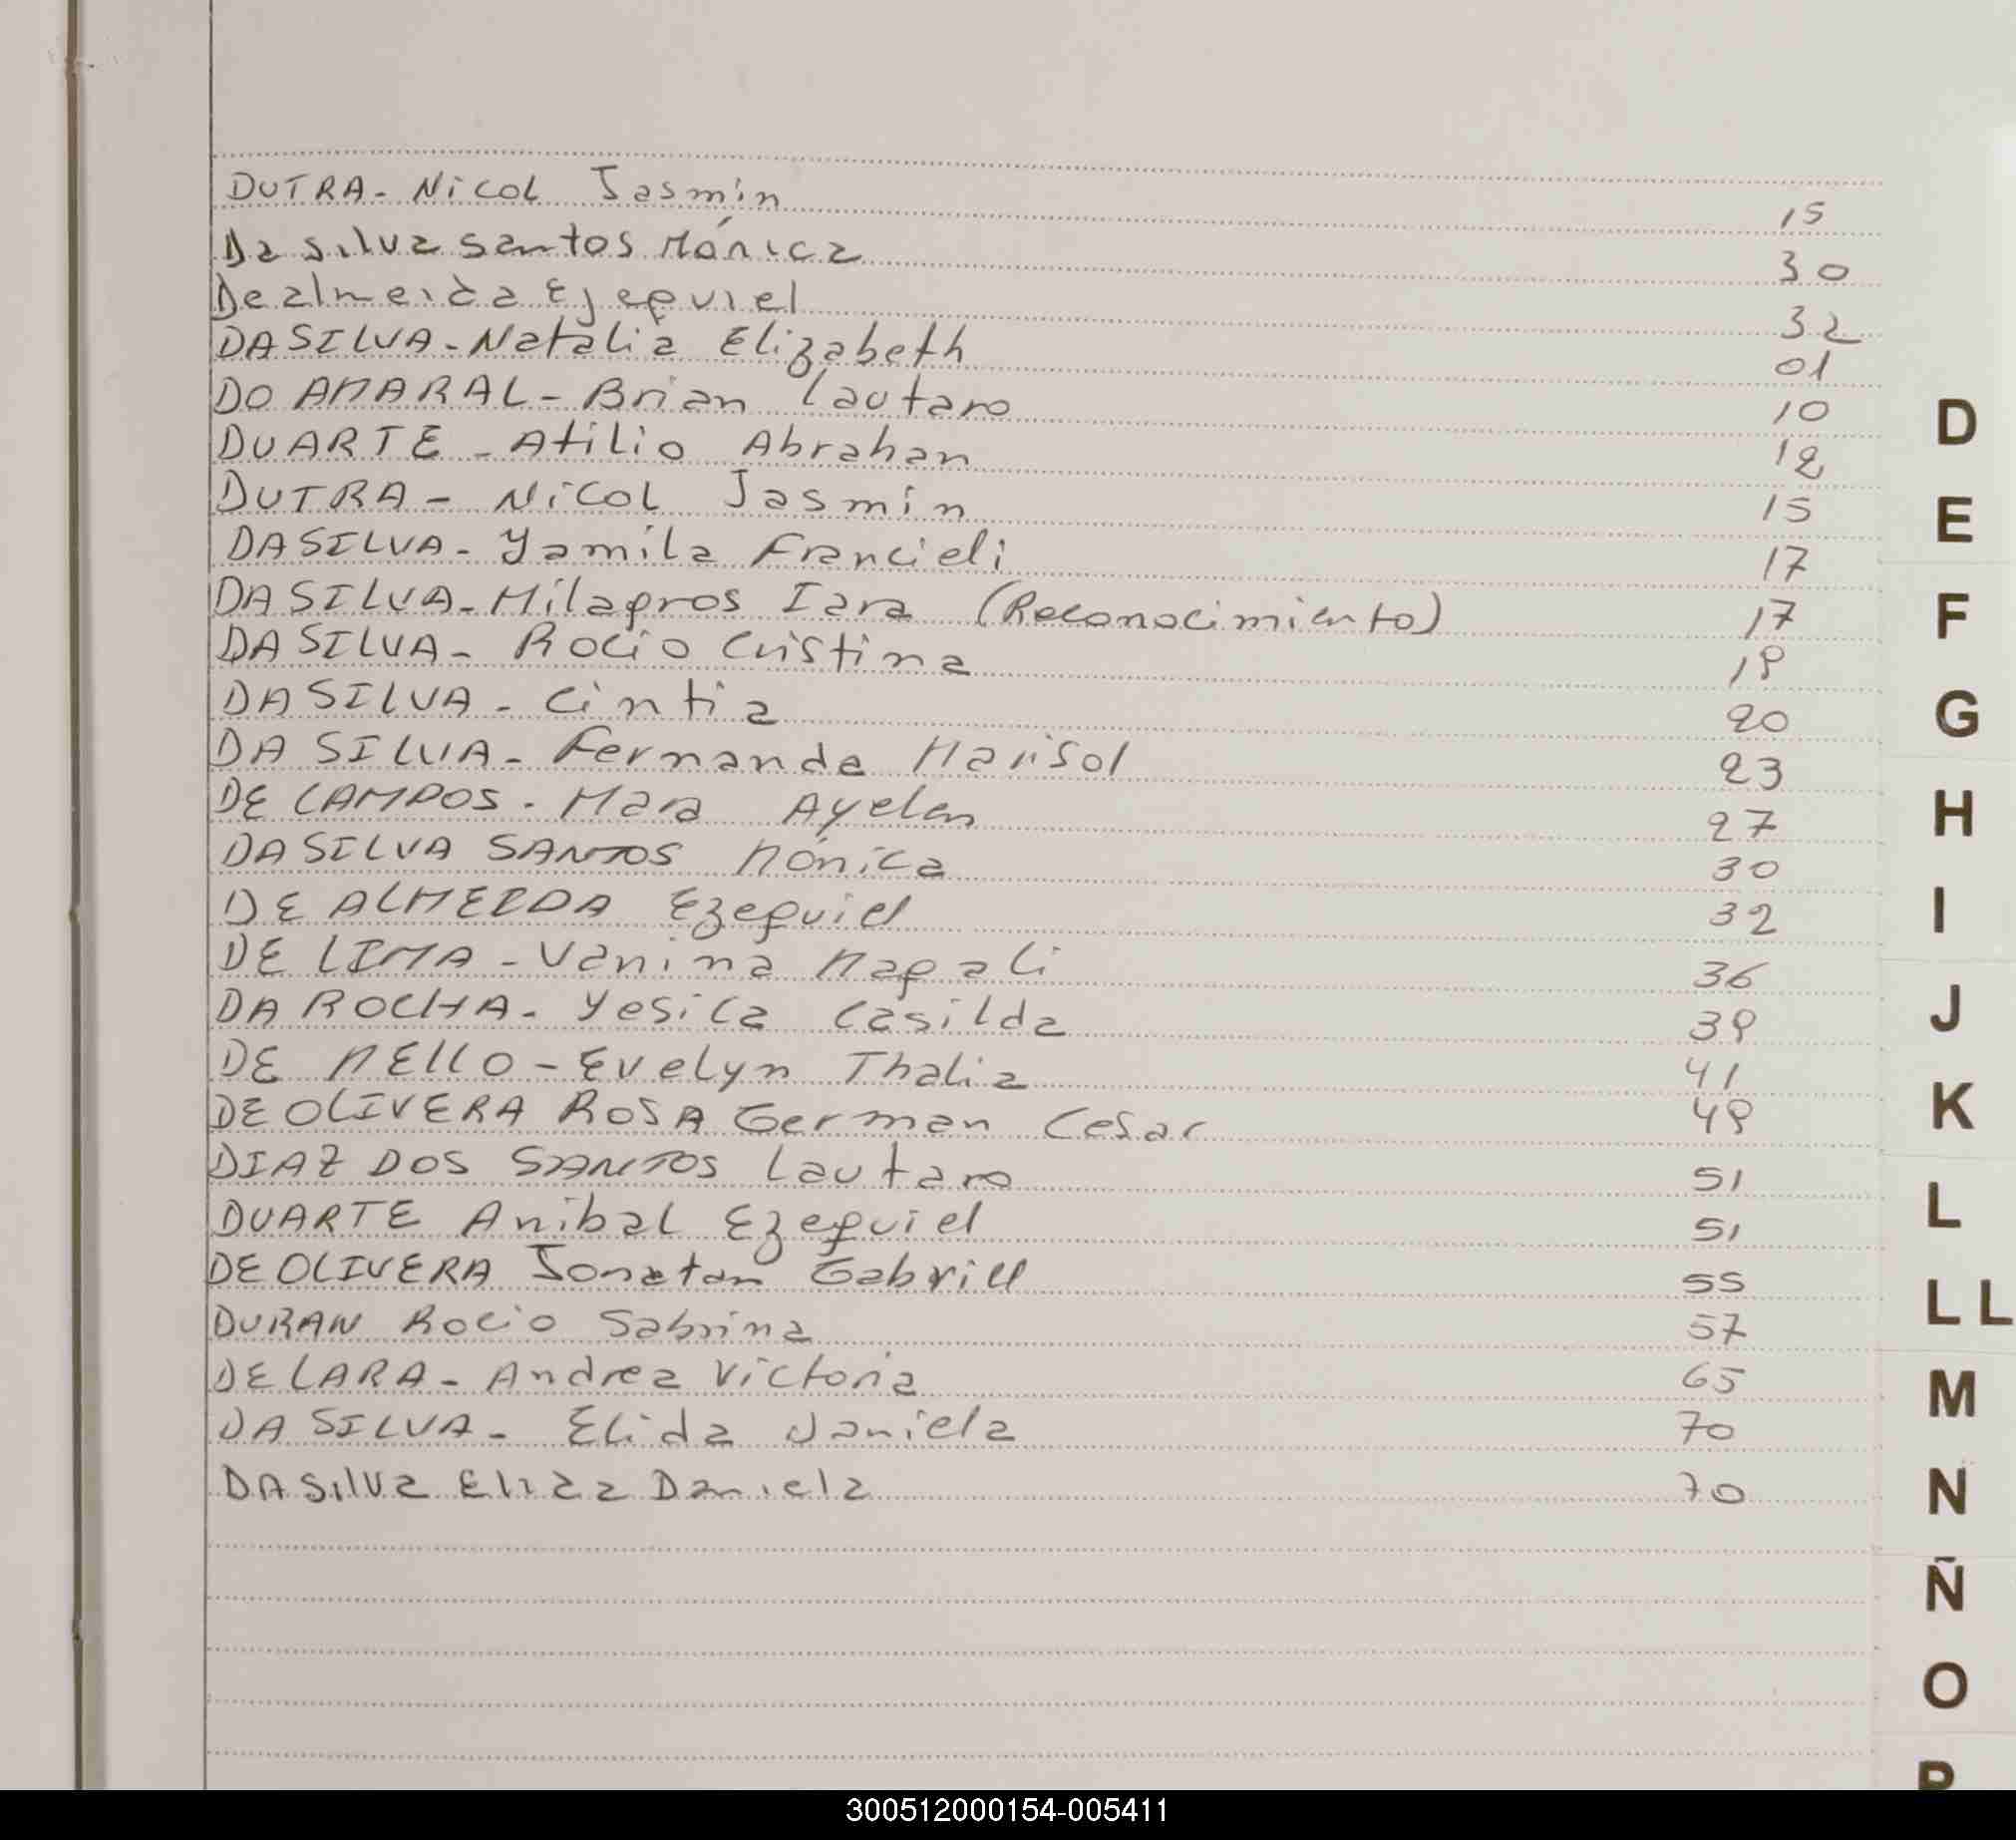 DUTRA - Nicol Jasmin 15
Da silva santos Mónica 30
De almeida Ezequiel 32
DA SILVA - Natalia Elizabeth 01
DO AMARAL - Brian Lautaro 10
DUARTE - Atilio Abrahan 12
DUTRA - Nicol Jasmin 15
DA SILVA - Yamila Francieli 17
DA SILVA - Milagros Iara (Reconocimiento) 17
DA SILVA - Rocio Cristina 18
DA SILVA - Cintia 20
DA SILVA - Fernanda Marisol 23
DE CAMPOS - Mara Ayelen 27
DA SILVA SANTOS Mónica 30
DE ALMEIDA Ezequiel 32
DE LIMA - Vanina Magali 36
DA ROCHA - Yesica Casilda 38
DE MELLO - Evelyn Thalia 41
DE OLIVERA ROSA German Cesar 48
DIAZ DOS SANTOS Lautaro 51
DUARTE Anibal Ezequiel 51
DE OLIVERA Jonatan Gabriel 55
DURAN Rocio Sabrina 57
DE LARA - Andrea Victoria 65
DA SILVA - Elida Daniela 70
DA Silva Elida Daniela 70
D
E
F
G
H
I
J
K
L
LL
M
N
Ñ
O
P
300512000154-005411